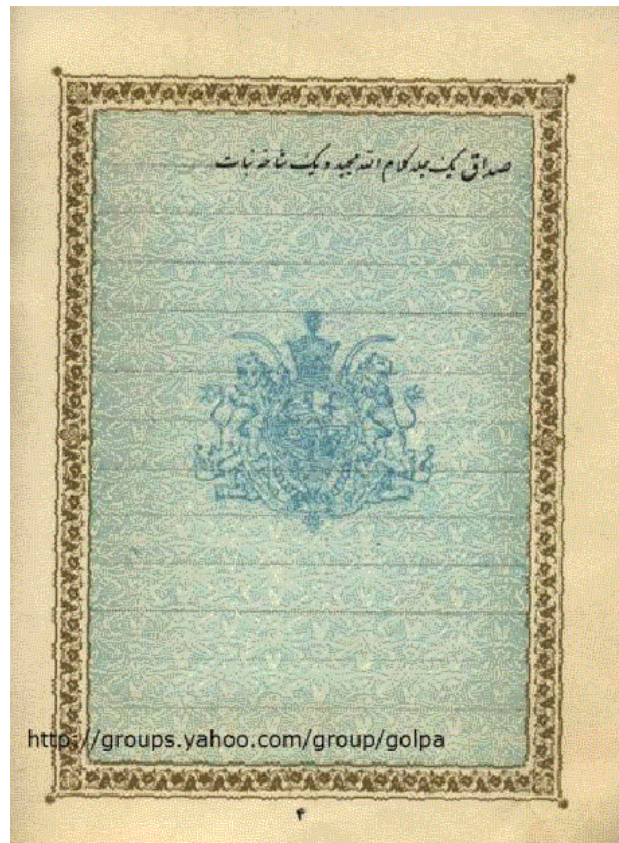 صداق یک جلد کلام الله مجید و یک شاخه نبات
http://groups.yahoo.com/group/golpa
۴